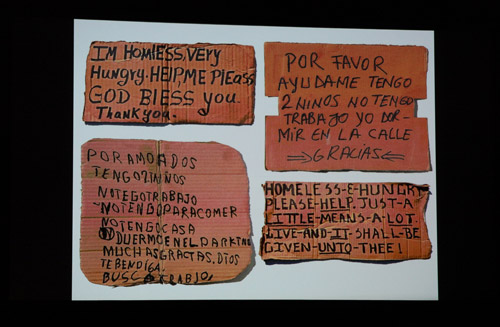 IM HOMlESS,VERy
HuNgRy.HElpME PlEasE
GOD BlESS you.
Thank you.
POR FAVOR
AYUDAME TENGO
2 NINOS NO TENGO
TRABAJO YO DOR-
MIR EN LA CALLE
GRACIAS
POR AMOR A DOS
TENGO 2 NIÑOS
NO TEGO TRABAJO
NO TENGO PARA COMER
NO TENGO CASA
DUERMO EN EL PARKING
MUCHAS GRACIAS. DIOS
TE BENDIGA.
BUSCO TRABJO
HOMELESS-E-HUNGRY
PLEASE-HELP. JUST-A
LITTLE-MEANS-A-LOT.
GIVE-AND-IT-SHALL-BE
GIVEN-UNTO-THEE!